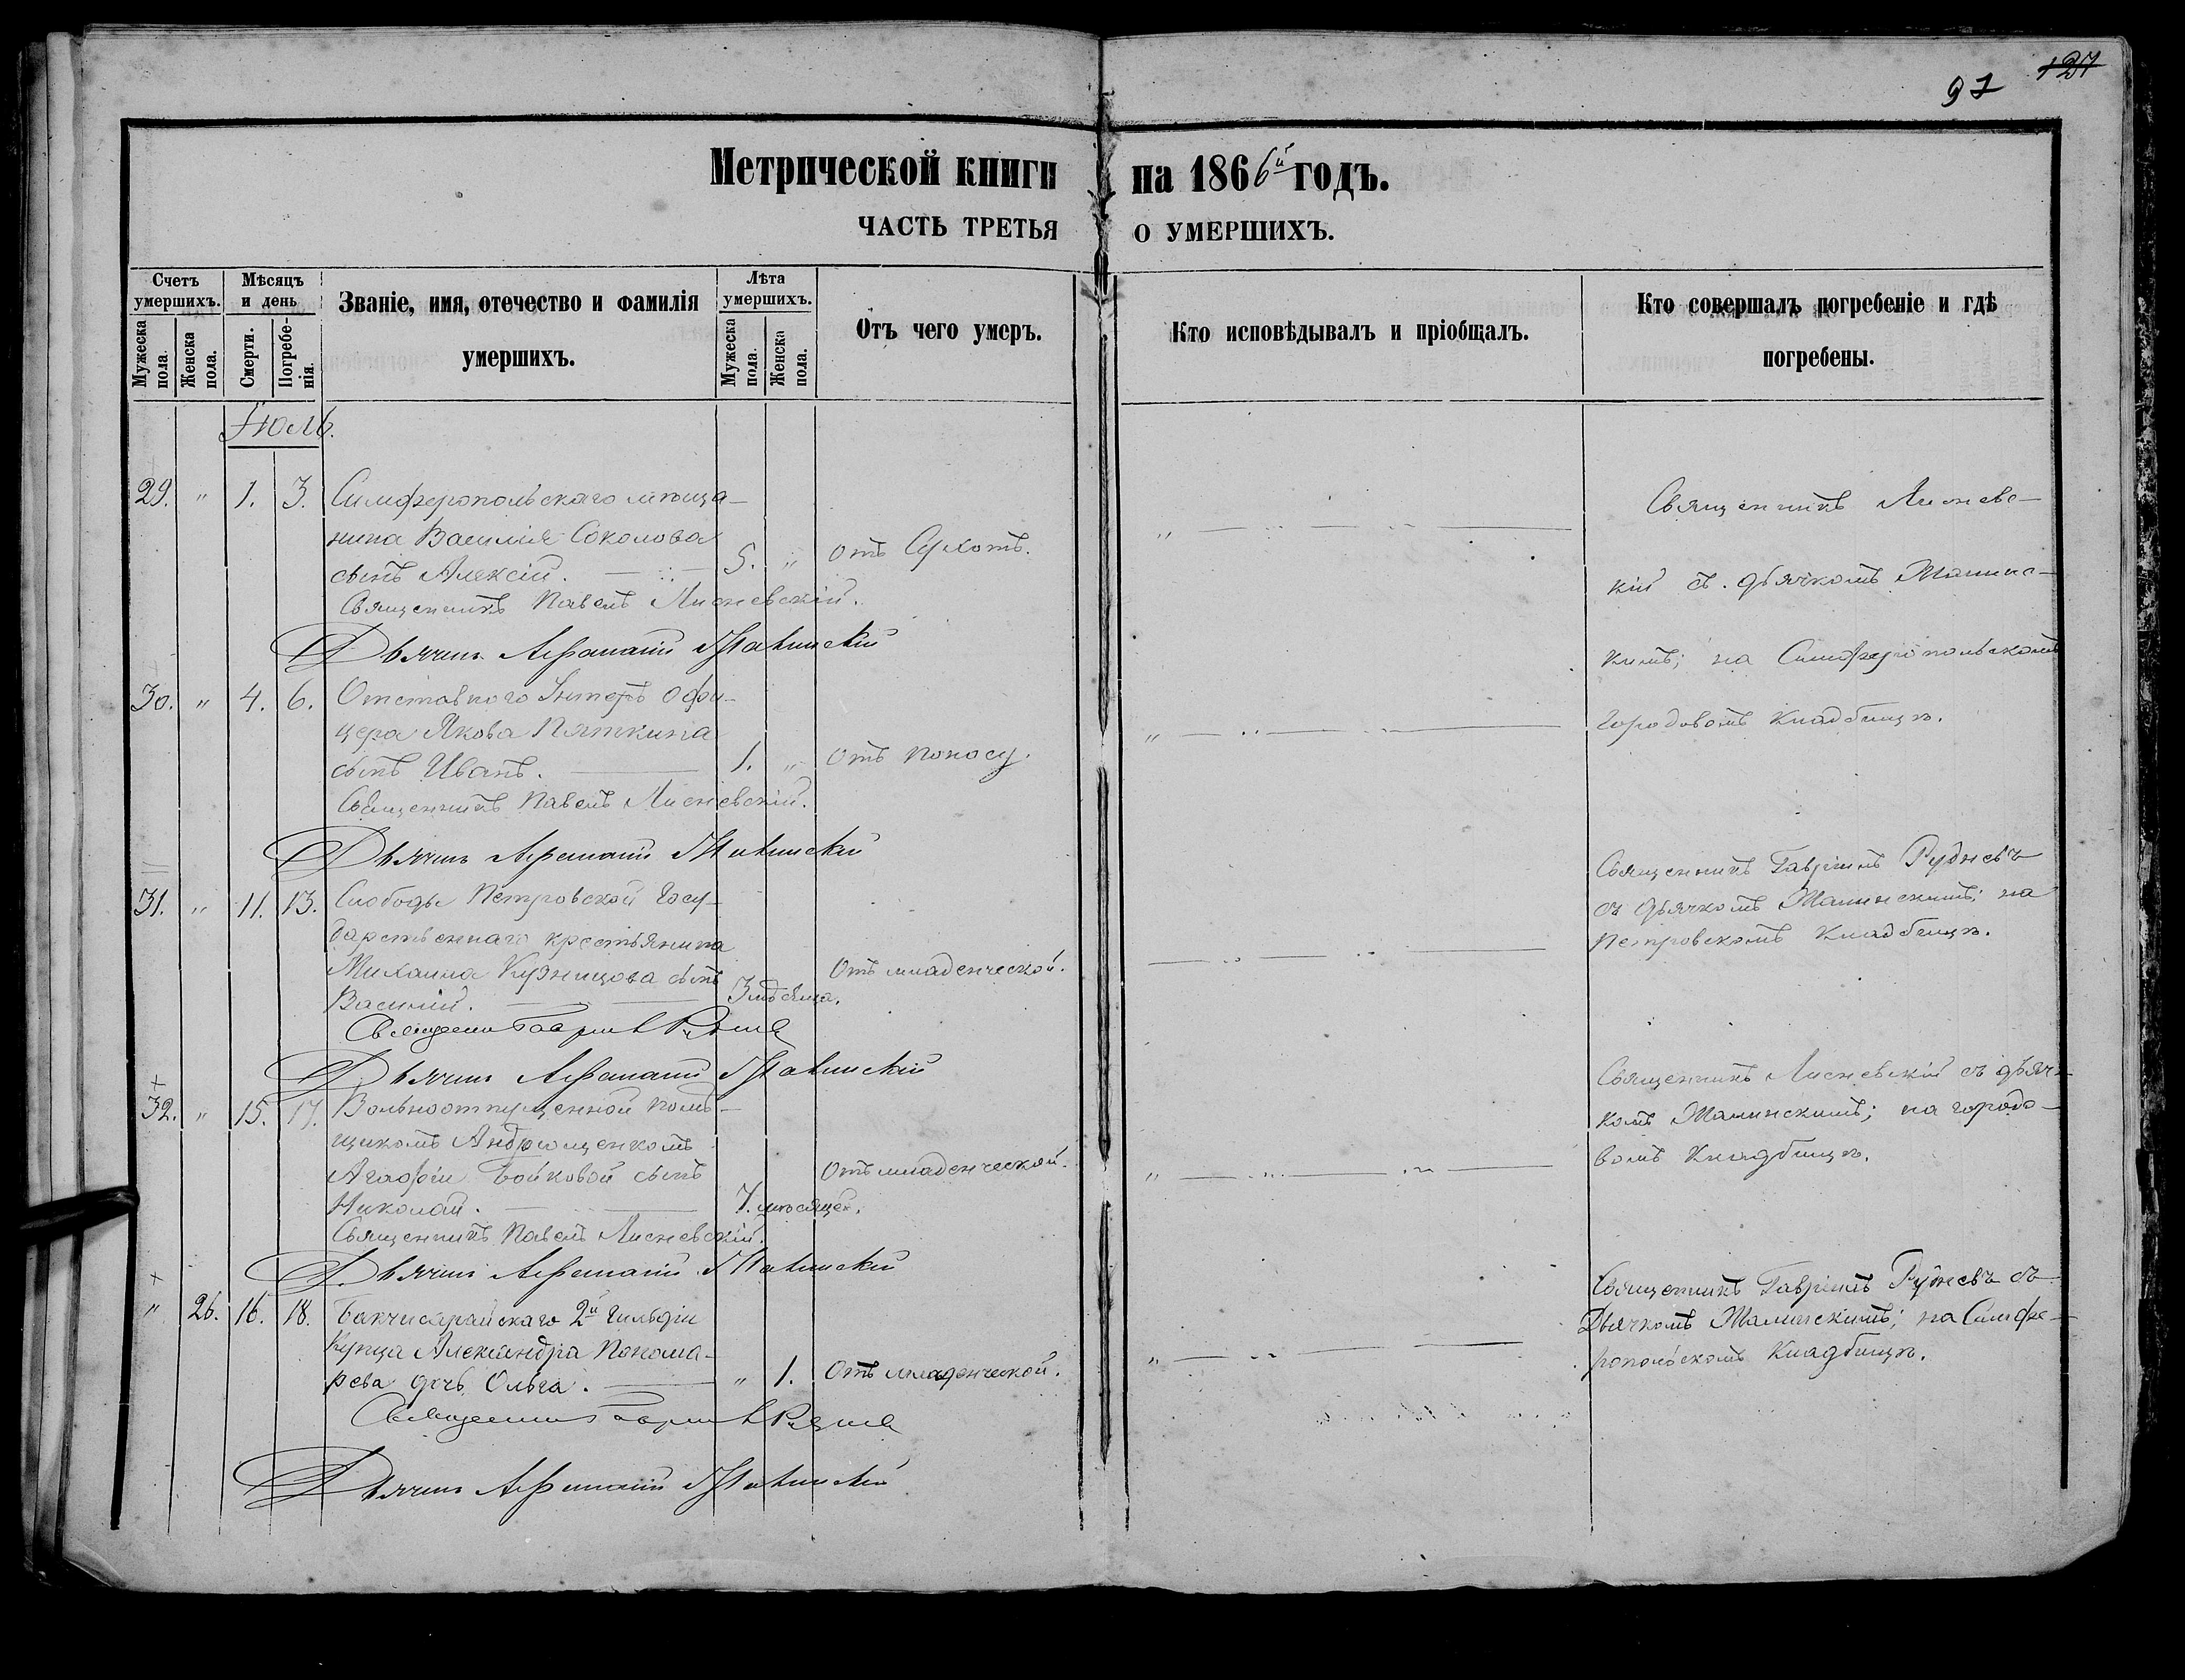 97 127
Метрической книги на 1866й годъ.
ЧАСТЬ ТРЕТЬЯ О УМЕРШИХЪ.
Счетъ умершихъ.
Мужеска пола.
Женска пола.
Мѣсяцъ и день
Смерти.
Погребенія.
Званіе, имя, отечество и фамилія умершихъ.
Лѣта умершихъ.
Мужеска пола.
Женска пола.
Отъ чего умеръ.
Кто исповѣдывалъ и пріобщалъ.
Кто совершалъ погребеніе и гдѣ погребены.
Іюль.
29. " 1. 3. Симферопольскаго мѣща-
нина Василія Соколова
сынъ Алексій. 5. " отъ Сухотъ.
Священникъ Павелъ Лисневскій.
Дьячекъ Афанасій Жалинскій
Священникъ Лисневс-
кій съ дьячкомъ Жалинс-
кимъ; на Симферопольскомъ
городовомъ кладбищѣ.
30. " 4. 6. Отставного Унтеръ офи-
цера Якова Пяткина
сынъ Иванъ. 1. " отъ поносу.
Священникъ Павелъ Лисневскій.
Дьячекъ Афанасій Жалинскій
31. " 11. 13. Слободы Петровской Госу-
дарственнаго крестьянина
Михаила Кузнецова сынъ
Василій. 3 мѣсяца. Отъ младенческой.
Священникъ Гавріилъ Рудневъ
Дьячекъ Афанасій Жалинскій
Священникъ Гавріилъ Рудневъ
съ дьячкомъ Жалинскимъ; на
Петровскомъ кладбищѣ.
32. " 15. 17. Вольноотпущенной помѣ-
щикомъ Андрющенкомъ
Агафіи Бойковой сынъ
Николай. 7. мѣсяцев. Отъ младенческой.
Священникъ Павелъ Лисневскій.
Дьячекъ Афанасій Жалинскій
Священникъ Лисневскій съ дьяч-
комъ Жалинскимъ; на городо-
вомъ кладбищѣ.
" 26. 16. 18. Бакчисарайскаго 2й гильдіи
купца Александра Понома-
рева дочь Ольга. " 1. Отъ младенческой.
Священникъ Гавріилъ Рудневъ
Дьячекъ Афанасій Жалинскій
Священникъ Гавріилъ Рудневъ съ
Дьячкомъ Жалинскимъ; на Симфе-
ропольскомъ кладбищѣ.